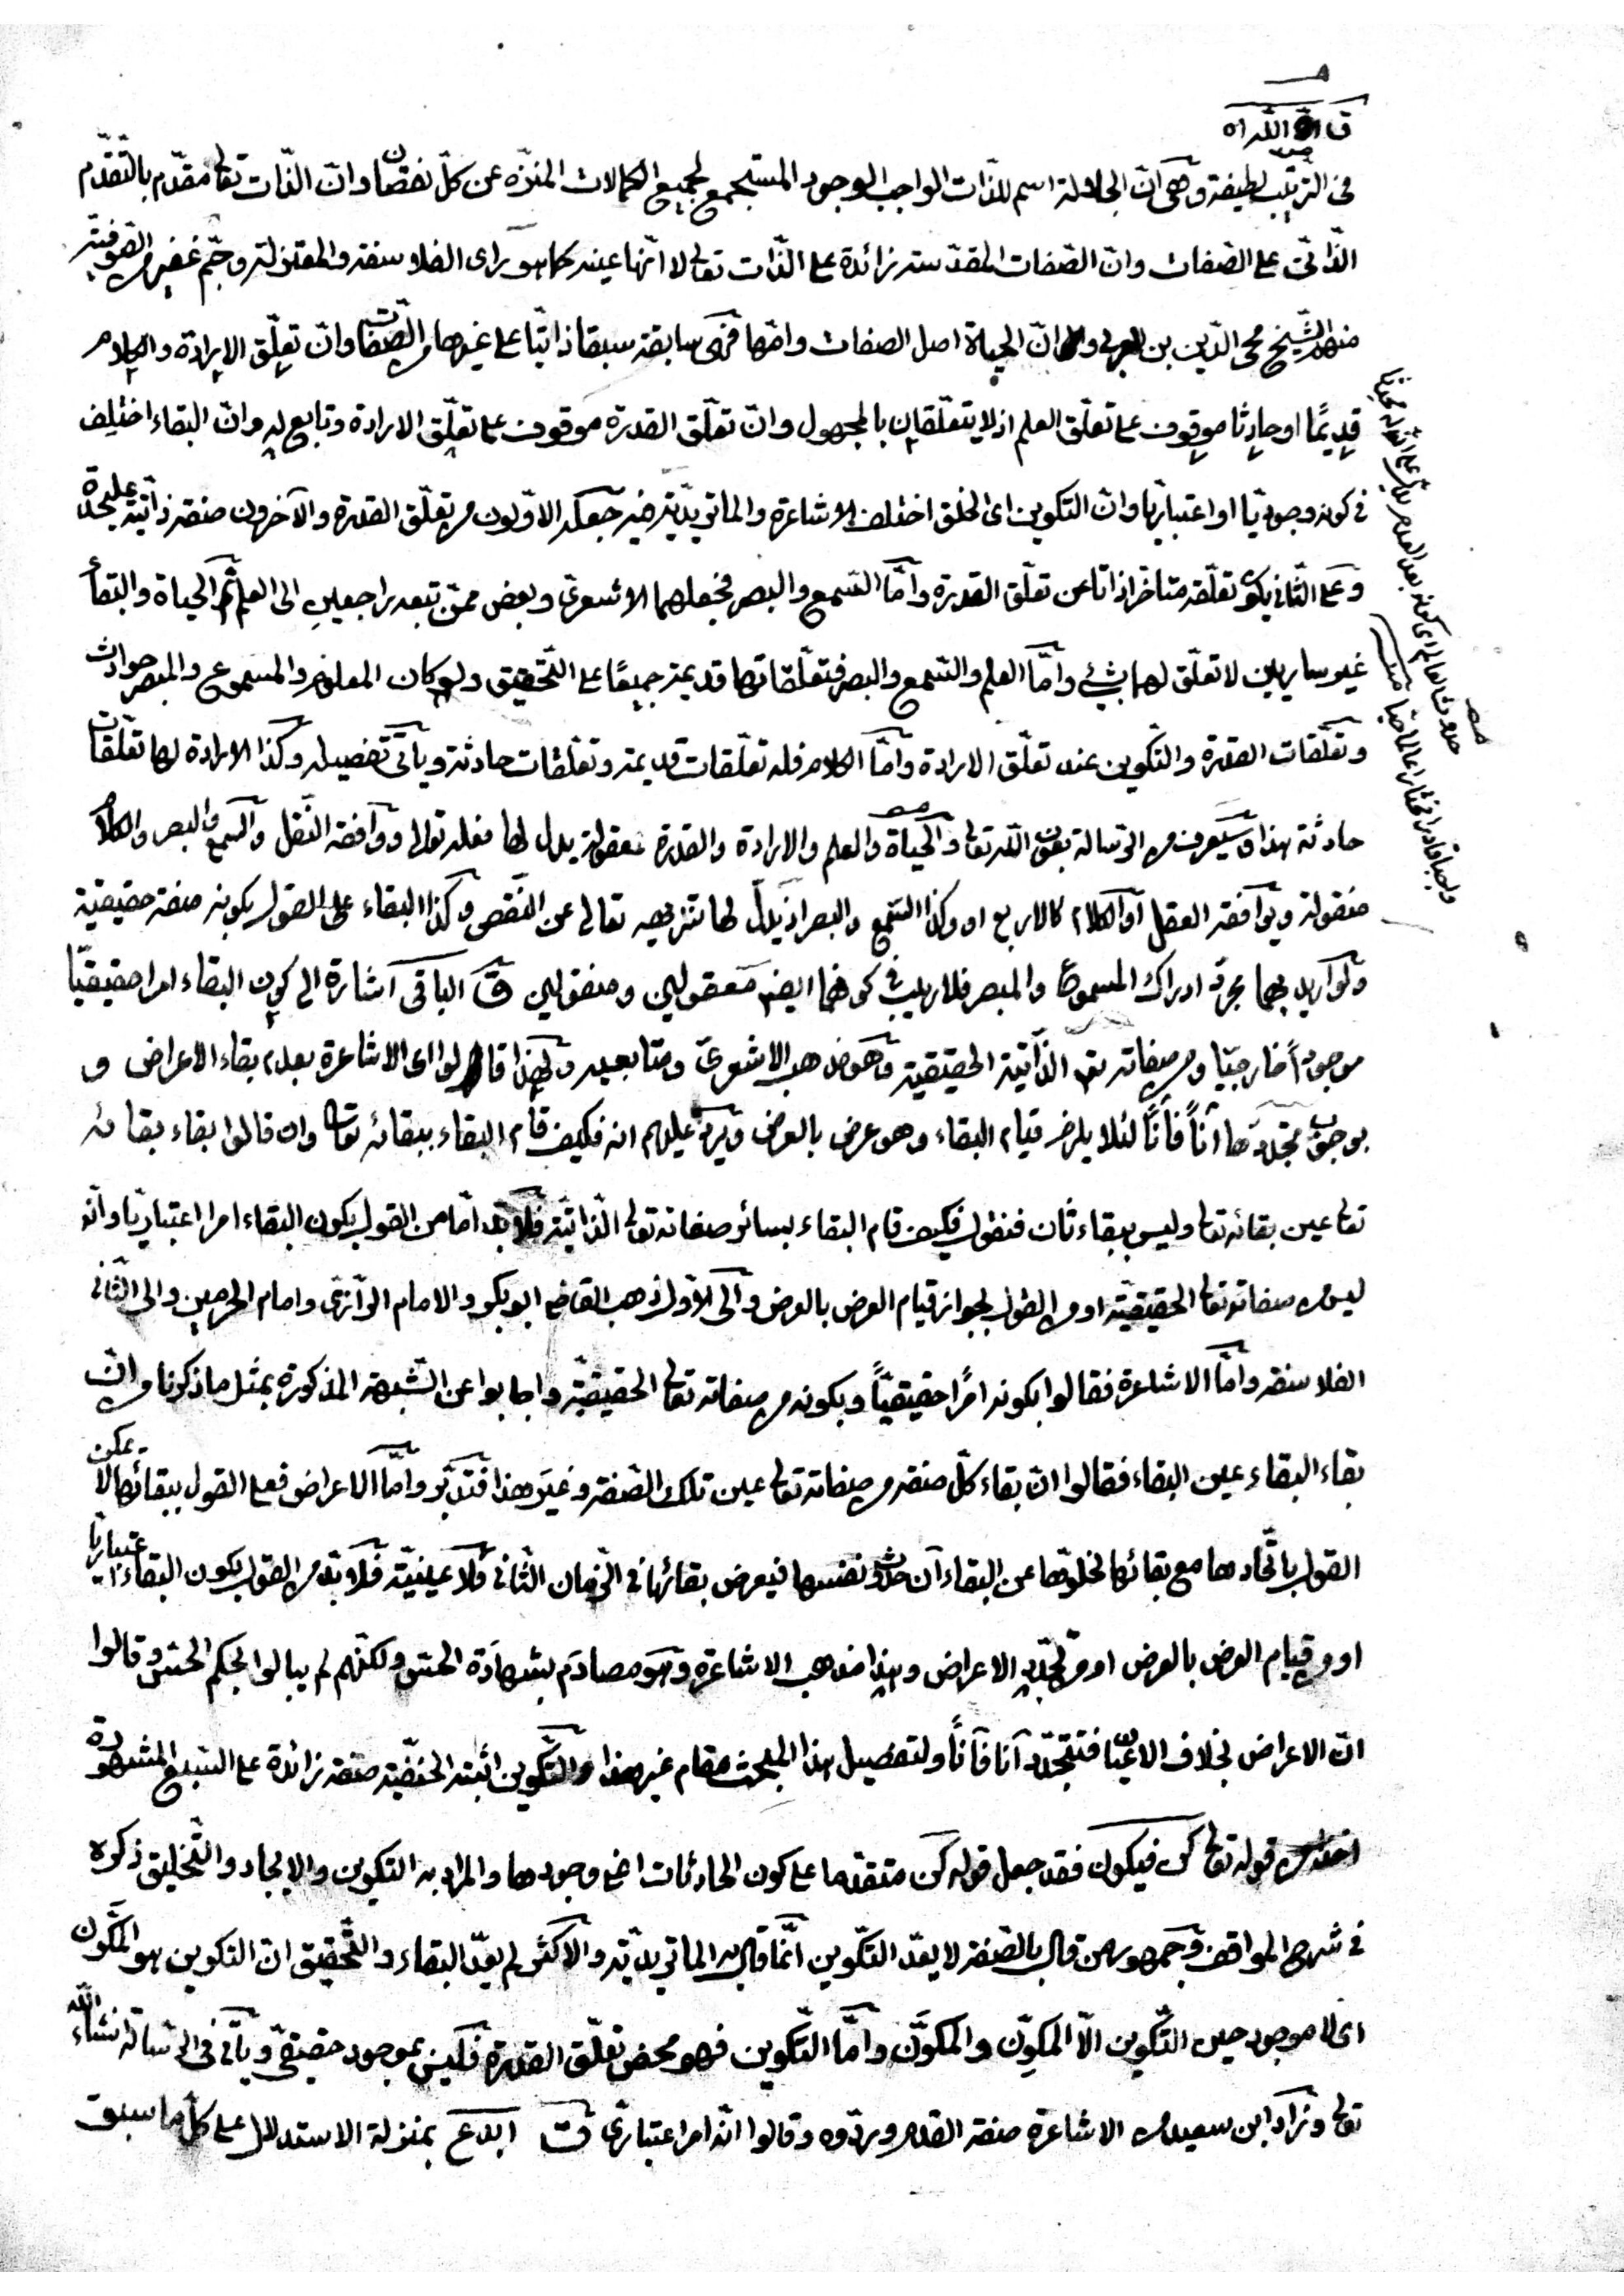 ق ان الله اه
في الترتيب لطيفة وهي ان الجلالة اسم للذات الواجب الوجود المستجمع لجميع الكمالات المنزه عن كل نقصان وان الذات تعالى مقدم بالتقدم
الذاتي على الصفات وان الصفات المقدسة زائدة على الذات تعالى لا انها عينه كما هو رأى الفلاسفة والمعتزلة وجم غفير من الصوفية
منهم الشيخ محى الدين بن العربي وان الحياة اصل الصفات وامها فهى سابقة سبقا ذاتيا على غيرها من الصفات وان تعلق الارادة والكلام
قديمًا او حادثا موقوف على تعلق العلم اذ لا يتعلقان بالمجهول وان تعلق القدرة موقوف على تعلق الارادة وتابع له وان البقاء اختلف
في كونه وجوديا او اعتباريا وان التكوين اى الخلق اختلف الاشاعرة والماتريدية فيه جعله الاولون من تعلق القدرة والآخرون صفة ذاتية عليحدة
وعلى الثاني يكون تعلقه متأخرا ذاتا عن تعلق القدرة واما السمع والبصر فجعلهما الاشعرى وبعض ممن تبعه راجعين الى العلم ثم الحياة والبقاء
غير سايرين لا تعلق لهما بشئ واما العلم والسمع والبصر فتعلقاتها قديمة جميعًا على التحقيق ولو كان المعلوم والمسموع والمبصر حوادث
وتعلقات القدرة والتكوين عند تعلق الارادة واما الكلام فله تعلقات قديمة وتعلقات حادثة ويأتى تفصيله وكذا الارادة لها تعلقات
حادثة هذا وسيعرف من الرسالة بعون الله تعالى والحياة والعلم والارادة والقدرة معقولة يدل لها فعله تعالى ووافقه النقل والسمع والبصر والكلام
منقولة ويوافقه العقل او الكلام كالاربع او وكذا السمع والبصر اذ يدل لها تنزيهه تعالى عن النقص وكذا البقاء على القول بكونه صفة حقيقية
ولو اريد بهما مجرد ادراك المسموع والمبصر فلا ريب في كونهما ايضا معقولين ومنقولين ق الباقى اشارة الى كون البقاء امرا حقيقيا
موجودًا خارجيا ومن صفاته تعالى الذاتية الحقيقية وهو مذهب الاشعرى ومتابعيه ولهذا قالوا اى الاشاعرة بعدم بقاء الاعراض و
بوجوب تجددها آنًا فآنًا لئلا يلزم قيام البقاء وهو عرض بالعرض ويرد عليهم انه فكيف قام البقاء ببقائه تعالى وان قالوا بقاء بقائه
تعالى عين بقائه تعالى وليس ببقاء ثان فنقول فكيف قام البقاء بسائر صفاته تعالى الذاتية فلا بد اما من القول بكون البقاء امرا اعتباريا وانه
ليس من صفاته تعالى الحقيقية او من القول بجواز قيام العرض بالعرض والى الاول ذهب القاضى ابو بكر والامام الرازى وامام الحرمين والى الثانى
الفلاسفة واما الاشاعرة فقالوا بكونه امرًا حقيقيًا وبكونه من صفاته تعالى الحقيقية واجابوا عن الشبهة المذكورة بمثل ما ذكرنا من ان
بقاء البقاء عين البقاء فقالوا ان بقاء كل صفة من صفاته تعالى عين تلك الصفة وغير هذا فتدبر واما الاعراض فعلى القول ببقائها لا يمكن
القول باتحادها مع بقائها لخلوها عن البقاء آن حدوث نفسها فيعرض بقائها في الزمان الثانى فلا عينية فلا بد من القول بكون البقاء اعتباريا
او من قيام العرض بالعرض او من تجدد الاعراض وهذا مذهب الاشاعرة وهو مصادم بشهادة الحس ولكنهم لم يبالوا بحكم الحس وقالوا
ان الاعراض بخلاف الاعيان فتتجدد آنا فآنًا ولتفصيل هذا المبحث مقام غير هذا والتكوين اثبته الحنفية صفة زائدة على السبع المشهورة
اخذا من قوله تعالى كن فيكون فقد جعل قوله كن متقدما على كون الحادثات اعنى وجودها والمراد به التكوين والايجاد والتخليق ذكره
في شرح المواقف وجمهور من قال بالصفة لا يعد التكوين انما قال به الماتريدية والاكثر لم يعد البقاء والتحقيق ان التكوين هو المكون
اى لا موجود حين التكوين الا المكوِّن والمكوَّن واما التكوين فهو محض تعلق القدرة فليس بموجود حقيقى ويأتى فى الرسالة انشاء الله
تعالى وزاد ابن سعيد من الاشاعرة صفة القدم وردوه وقالوا انه امر اعتبارى ق ابدع بمنزلة الاستدلال على كل ما سبق